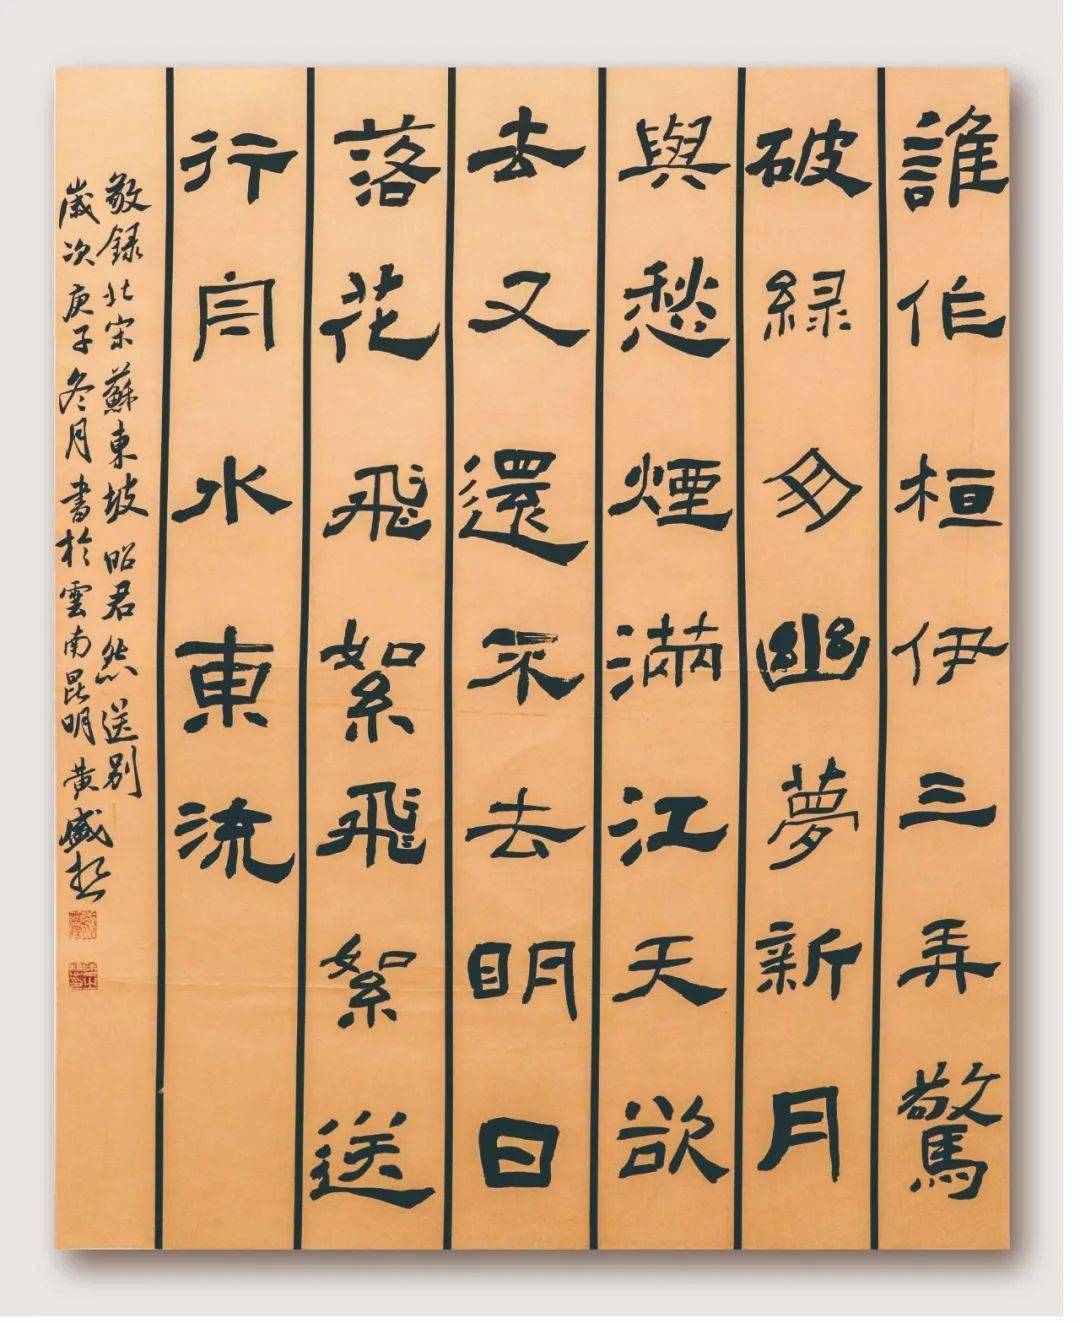 誰作桓伊三弄驚
破緑窗幽夢新月
與愁煙滿江天欲
去又還不去明日
落花飛絮飛絮送
行舟水東流
敬録北宋蘇東坡昭君怨送别
歲次庚子冬月書於雲南昆明黄盛